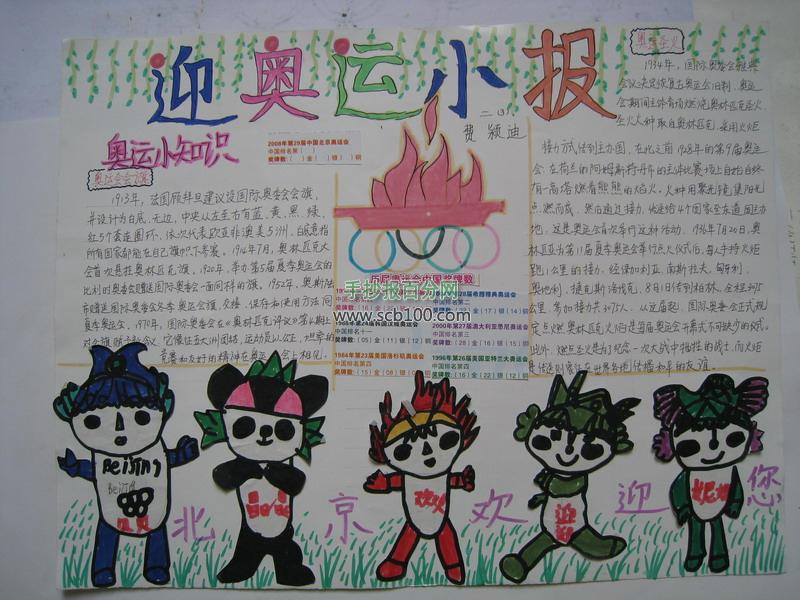 迎奥运小报
二(3)
费颖迪
奥运小知识
奥运会会旗
2008年第29届中国北京奥运会
中国排名第( )
奖牌数( )金( )银( )铜
1913年,法国顾拜旦建议设国际奥委会会旗,
并设计为白底、无边,中央从左至右有蓝、黄、黑、绿、
红5个套连圆环,依次代表欧亚非澳美5洲,白底意指
所有国家都能在自己旗帜下参赛。1914年7月,奥林匹克大
会首次悬挂奥林匹克旗,1920年,举办第5届夏季奥运会的
比利时奥委会赠送国际奥委会一面同样的旗。1952年,奥斯陆
市赠送国际奥委会冬季奥运会旗,交接、保存和使用方法同
夏季奥运会。1970年,国际奥委会在《奥林匹克评议》第
竞赛和友好的精神在奥运会上相见。
奥运圣火
1934年,国际奥委会雅典
会议决定恢复古奥运会旧制,奥运
会期间主体育场燃烧奥林匹克圣火,
圣火火种取自奥林匹克,采用火炬
接力方式传到主办国。在此之前1928年的第9届奥运
会,在荷兰的阿姆斯特丹市的主体赛场上自始自终
有一高塔燃着熊熊的焰火。火种用聚光镜集阳光
点燃而成,然后通过接力,传递给4个国家至东道国主办
地,这是奥运会首次举行这种活动。1936年7月20日,奥林
匹亚为第11届夏季奥运会举行点火仪式后,每人手持火炬
跑1公里的接力,经保加利亚、南斯拉夫、匈牙利、
奥地利、捷克斯洛伐克,8月1日传到柏林,全程3075
公里,参加接力共3075人。从这届起,国际奥委会正式规
定点燃奥林匹克火焰是每届奥运会开幕式不可缺少的仪式。
此外,燃点圣火是为了纪念一次大战中牺牲的战士,而火炬
接送则象征在世界各地传播和平的友谊。
六届奥运会中国奖牌数
2004年第28届希腊雅典奥运会
中国排名第二
奖牌数:(32)金(17)银(14)铜
1988年第24届韩国汉城奥运会
中国排名第十一
2000年第27届澳大利亚悉尼奥运会
中国排名第三
奖牌数:(28)金(16)银(15)铜
1984年第23届美国洛杉矶奥运会
中国排名第四
奖牌数:(15)金(08)银(09)铜
1996年第26届美国亚特兰大奥运会
中国排名第四
奖牌数:(16)金(22)银(12)铜
手抄报百分网
www.scb100.com
Beijing
贝贝
晶晶
欢欢
迎迎
妮妮
北京欢迎您